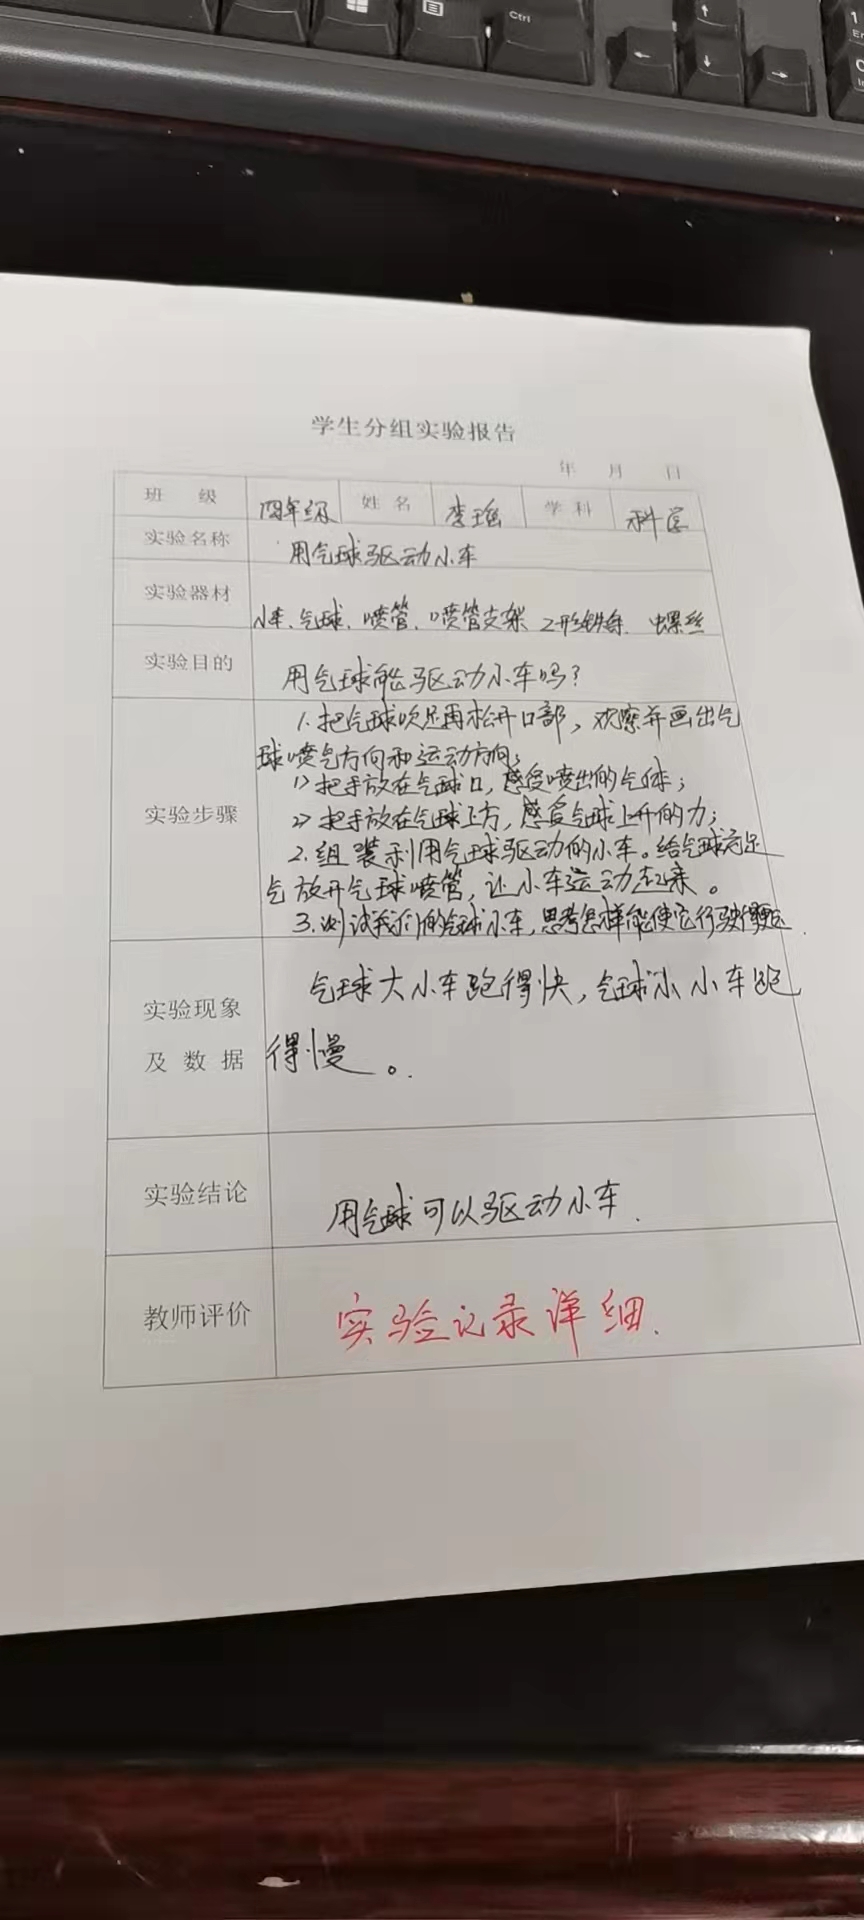 Ctrl
学生分组实验报告
年 月 日
班 级 四年级 姓名 李瑶 学科 科学
实验名称 用气球驱动小车
实验器材 小车、气球、喷管、喷管支架
实验目的 用气球能驱动小车吗?
实验步骤
1.把气球吹足再松开口部,观察并画出气
球喷气方向和运动方向;
1)把手放在气球口,感受喷出的气体;
2)把手放在气球上方,感受气球上升的力;
2.组装利用气球驱动的小车。给气球充足
气放开气球喷管,让小车运动起来。
3.测试我们的气球小车,思考怎样能使它行驶得更远.
实验现象
及数据
气球大小车跑得快,气球小小车跑
得慢。
实验结论 用气球可以驱动小车.
教师评价 实验记录详细.